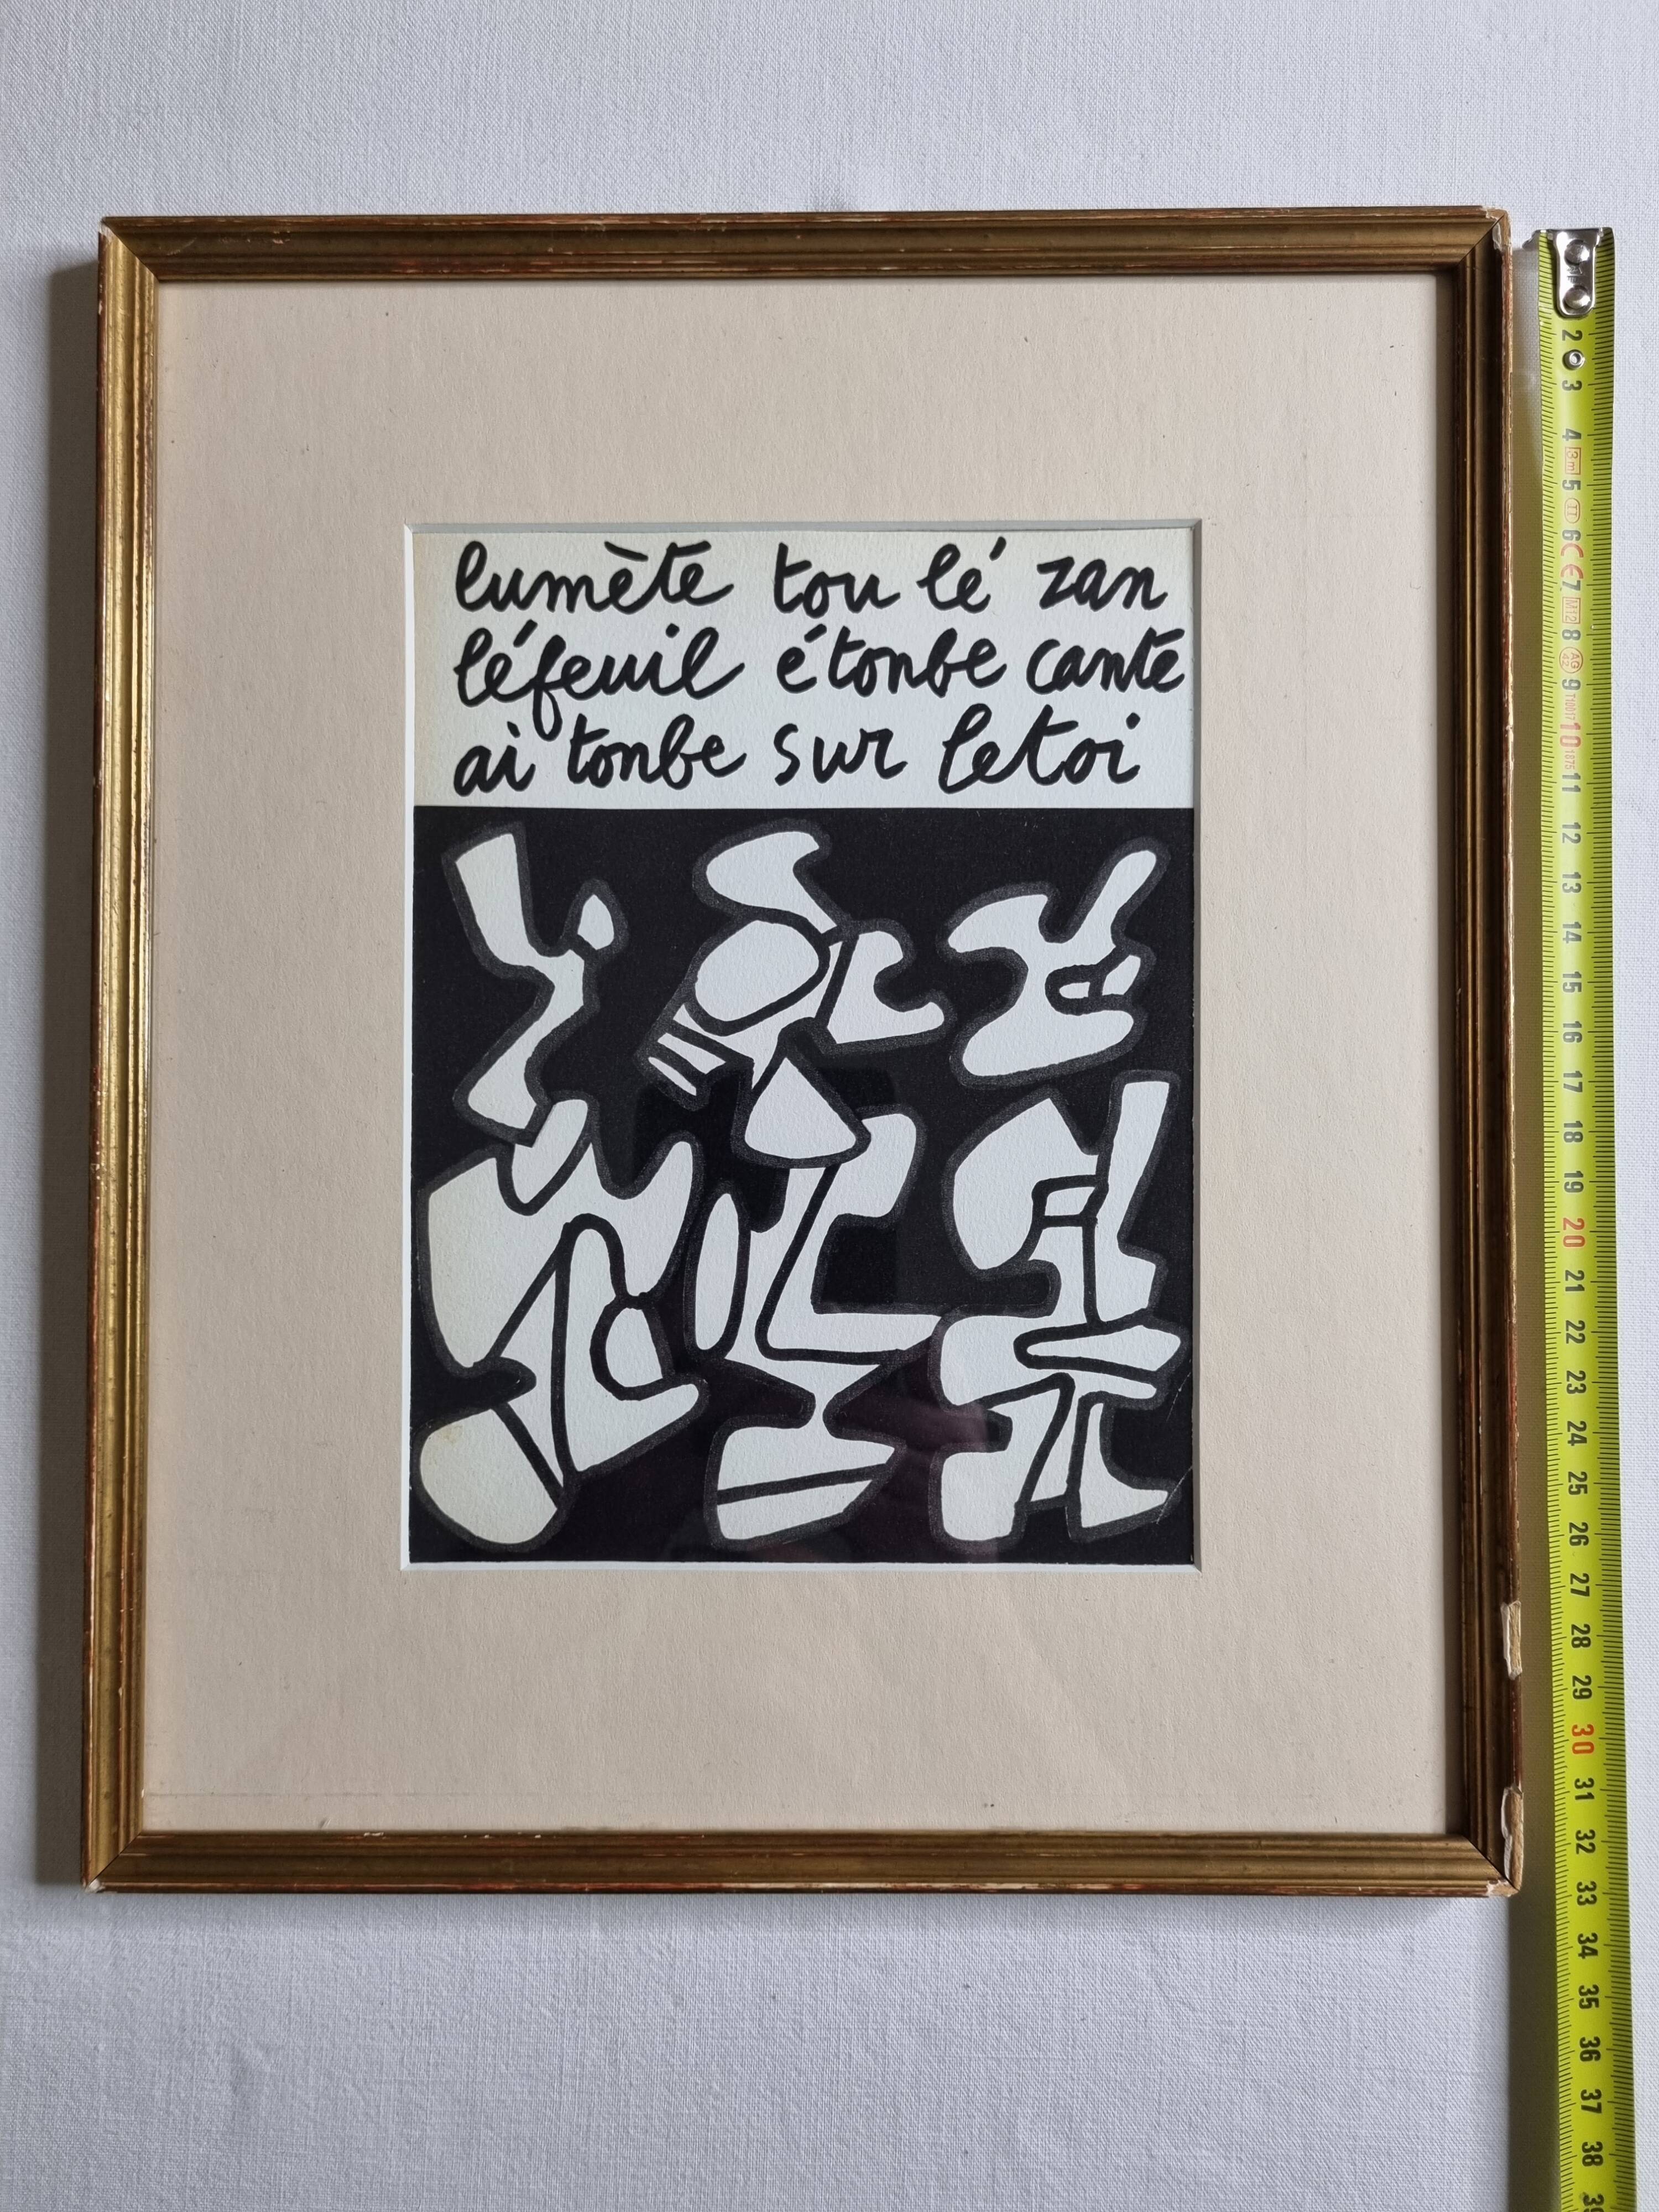 lumète tou lé zan
léfeuil étonbe cante
ai tonbe sur letoi
2
3
4 3m
5 II
6 CE
7 M12
8
9
10
11
12
13
14
15
16
17
18
19
20
21
22
23
24
25
26
27
28
29
30
31
32
33
34
35
36
37
38